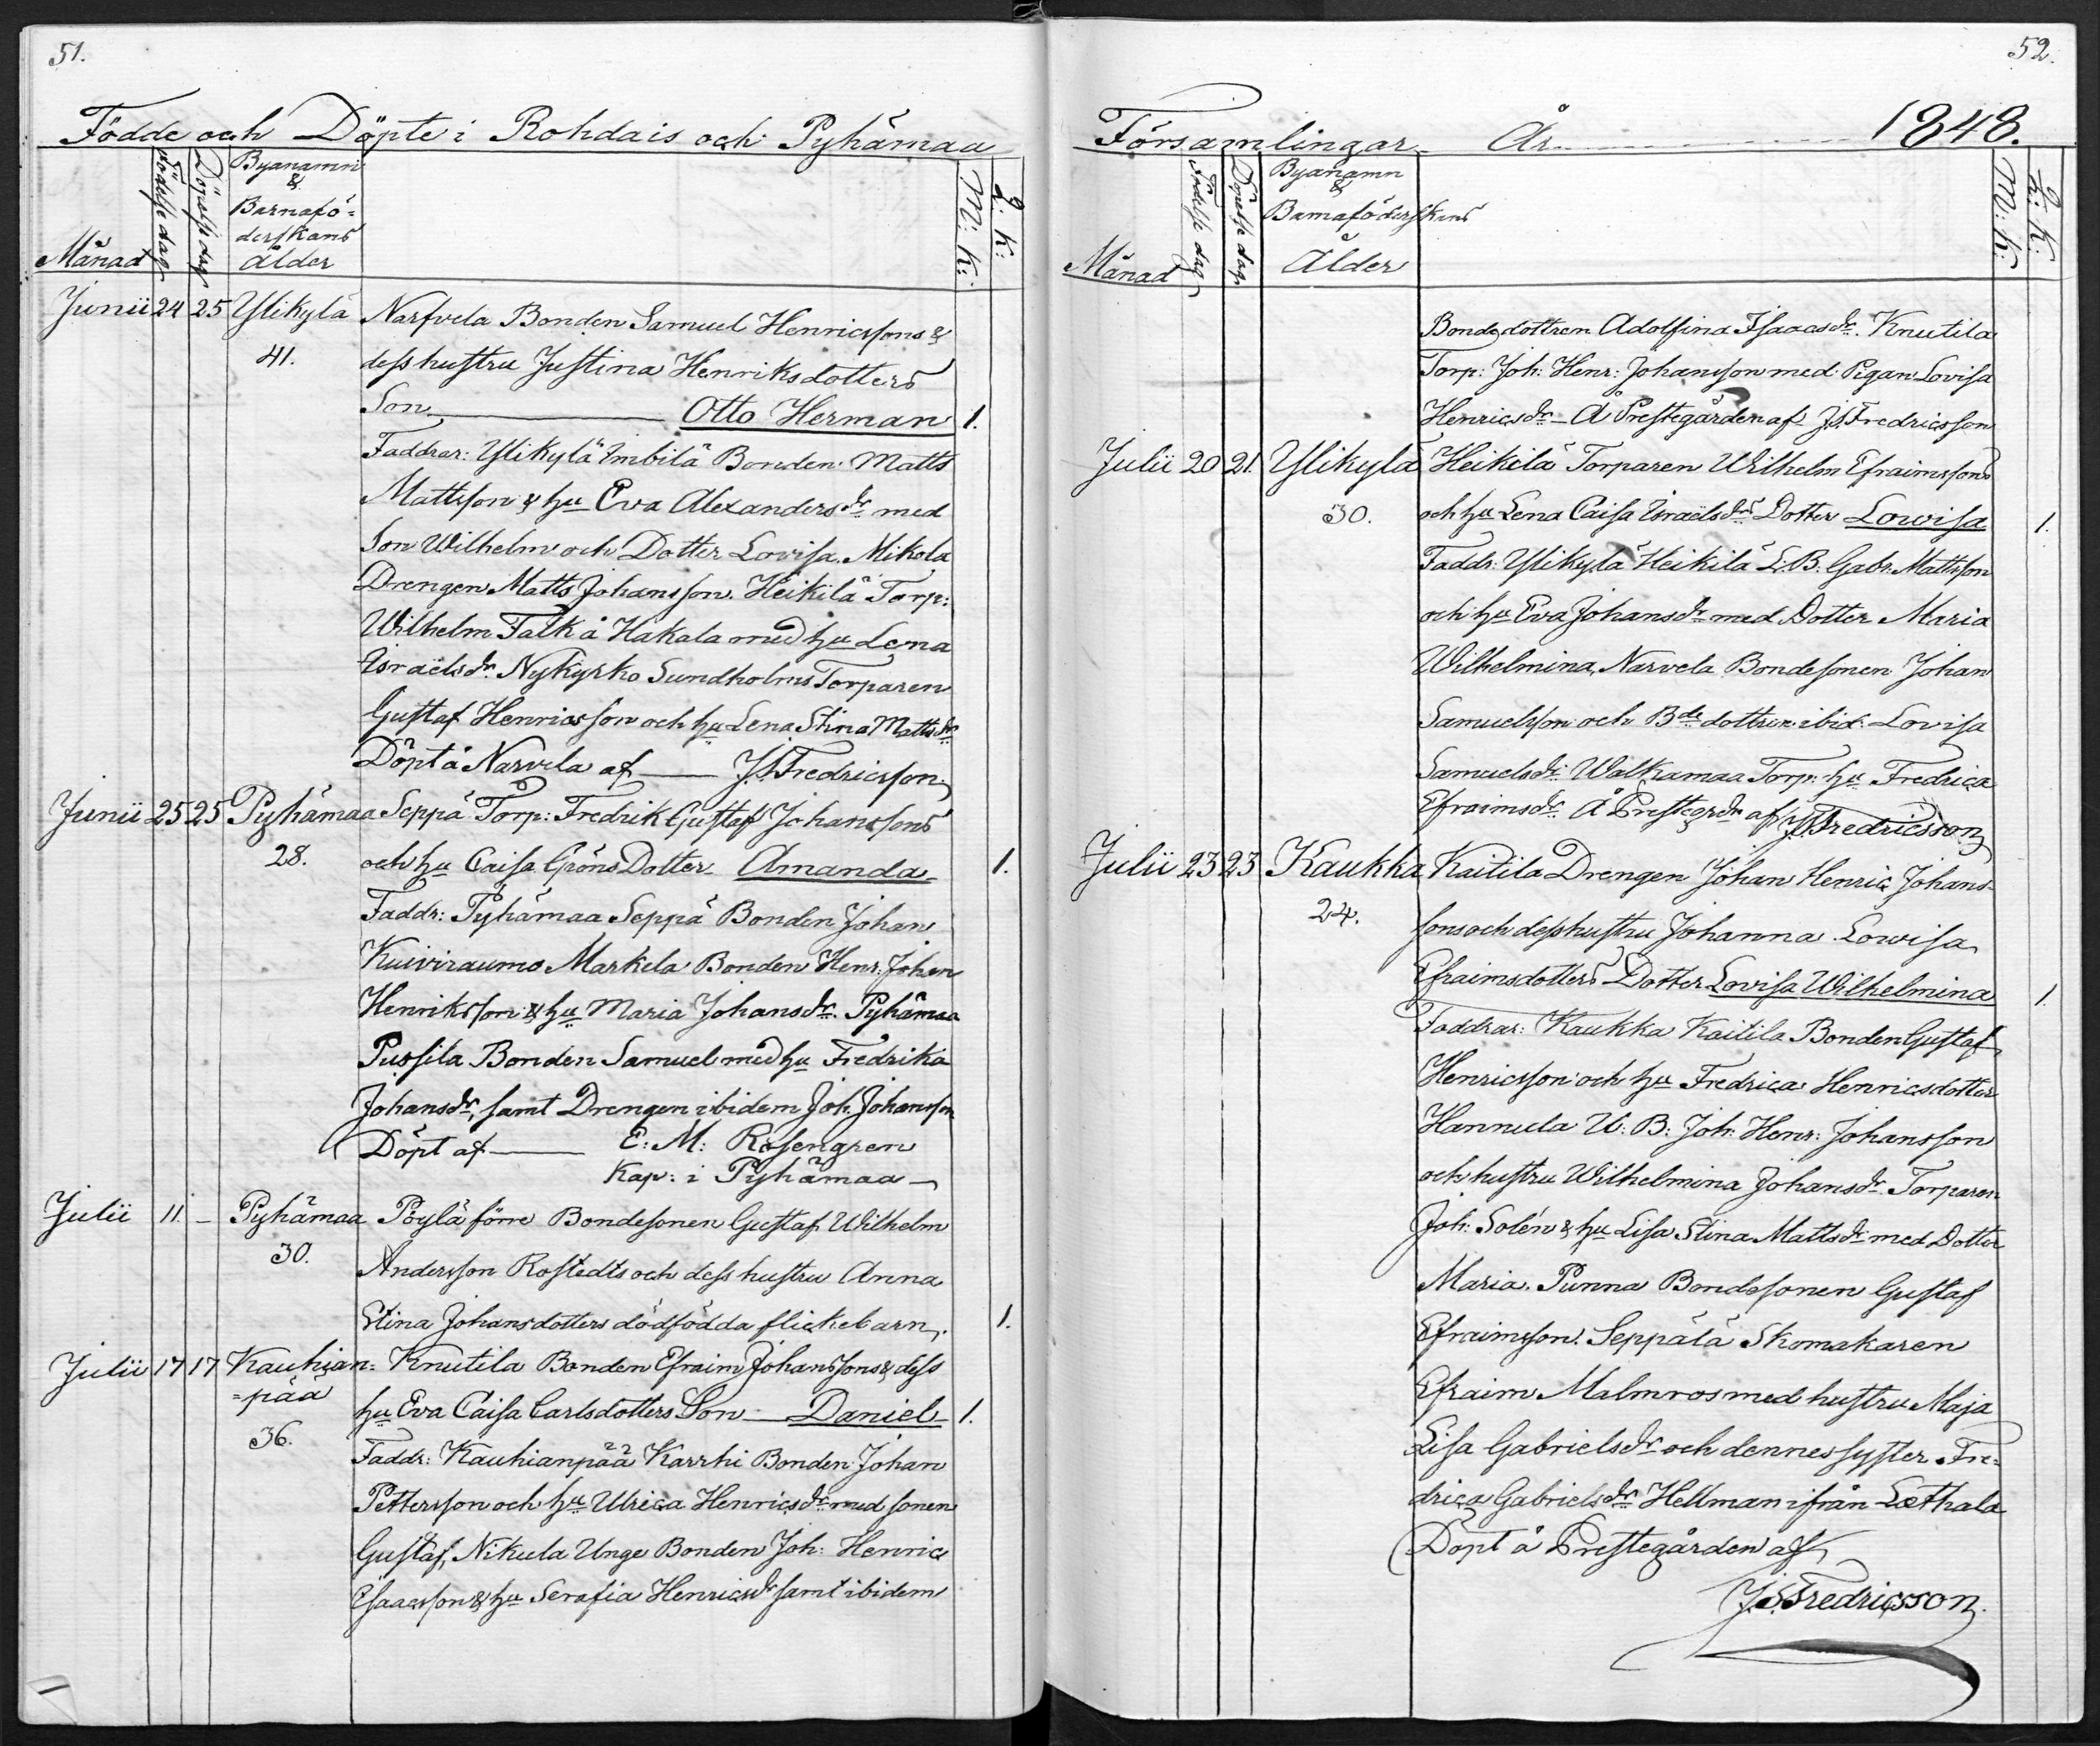 51.
Födde och Döpte i Rohdais och Pyhämaa
Månad
Födelse dag
Döpelse dag
Byanamn
&
Barnafö=
derskans
ålder
M: K:
Q: K:
Junii 24 25 Ylikylä Narfvela Bonden Samuel Henricssons &
41. dess hustru Justina Henriksdotters
Son Otto Herman 1.
Faddrar: Ylikylä Imbilä Bonden Matts
Mattsson & hu Eva Alexandersdr med
Son Wilhelm och Dotter Lovisa. Mikola
Drengen Matts Johansson. Heikilä Torp:
Wilhelm Falk å Hakala med hu Lena
Israëlsdr. Nykyrko Sundholms Torparen
Gustaf Henricsson och hu Lena Stina Mattsdr
Döpt å Narvela af J.S.Fredricsson.
Junii 25 25 Pyhämaa Seppä Torp: Fredrik Gustaf Johanssons
28. och hu Caisa Gröns Dotter Amanda 1.
Faddr: Pyhämaa Seppä Bonden Johan
Kuiviraumo Markela Bonden Henr: Johan
Henriksson & hu Maria Johansdr. Pyhämaa
Pussila Bonden Samuel med hu Fredrika
Johansdr, samt Drengen ibidem Joh. Johansson
Döpt af E: M: Rosengren
Kap: i Pyhämaa
Julii 11 – Pyhämaa Pöylä förre Bondesonen Gustaf Wilhelm
30. Andersson Rostedts och dess hustru Anna
Stina Johansdotters dödfödda flickebarn. 1.
Julii 17 17 Kauhian= Knutila Bonden Efraim Johanssons & dess
=pää hu Eva Caisa Carlsdotters Son Daniel 1.
36. Faddr: Kauhianpää Karrhi Bonden Johan
Pettersson och hu Ulrica Henricsdr med sonen
Gustaf, Nikula Unge Bonden Joh: Henric
Isaacsson & hu Serafia Henricsdr samt ibidem
52.
Församlingar År 1848.
Månad
Födelse dag
Döpelse dag
Byanamn
&
Barnaföderskans
Ålder
M: K:
Q: K:
Bondedottren Adolfina Isaacsdr. Knutila
Torp: Joh: Henr: Johansson med Pigan Lovisa
Henricsdr – Å Prestegården af J.S.Fredricsson
Julii 20 21. Ylikylä Heikilä Torparen Wilhelm Efraimssons
30. och hu Lena Caisa Israëlsdrs Dotter Lowisa 1.
Faddr: Ylikylä Heikilä L:B: Gabr. Mattsson
och hu Eva Johansdr med Dotter Maria
Wilhelmina, Narvela Bondesonen Johan
Samuelsson och Bde dottren ibid: Lovisa
Samuelsdr. Walkamaa Torp: hu Fredrica
Efraimsdr. Å Prestegrdn af J.S.Fredricsson
Julii 23 23 Kaukka Kaitila Drengen Johan Henric Johans-
24. sons och dess hustru Johanna Lowisa
Efraimsdotters Dotter Lovisa Wilhelmina 1.
Faddrar: Kaukka Kaitila Bonden Gustaf
Henricsson och hu Fredrica Henricsdotter
Hannula U: B: Joh: Henr: Johansson
och hustru Wilhelmina Johansdr. Torparen
Joh: Solén & hu Lisa Stina Mattsdr med Dotter
Maria. Punna Bondesonen Gustaf
Efraimsson. Seppälä Skomakaren
Efraim Malmros med hustru Maja
Lisa Gabrielsdr och dennes syster Fre=
drica Gabrielsdr Hellman ifrån Lethala
Döpt å Prestegården af
J.S.Fredricsson.